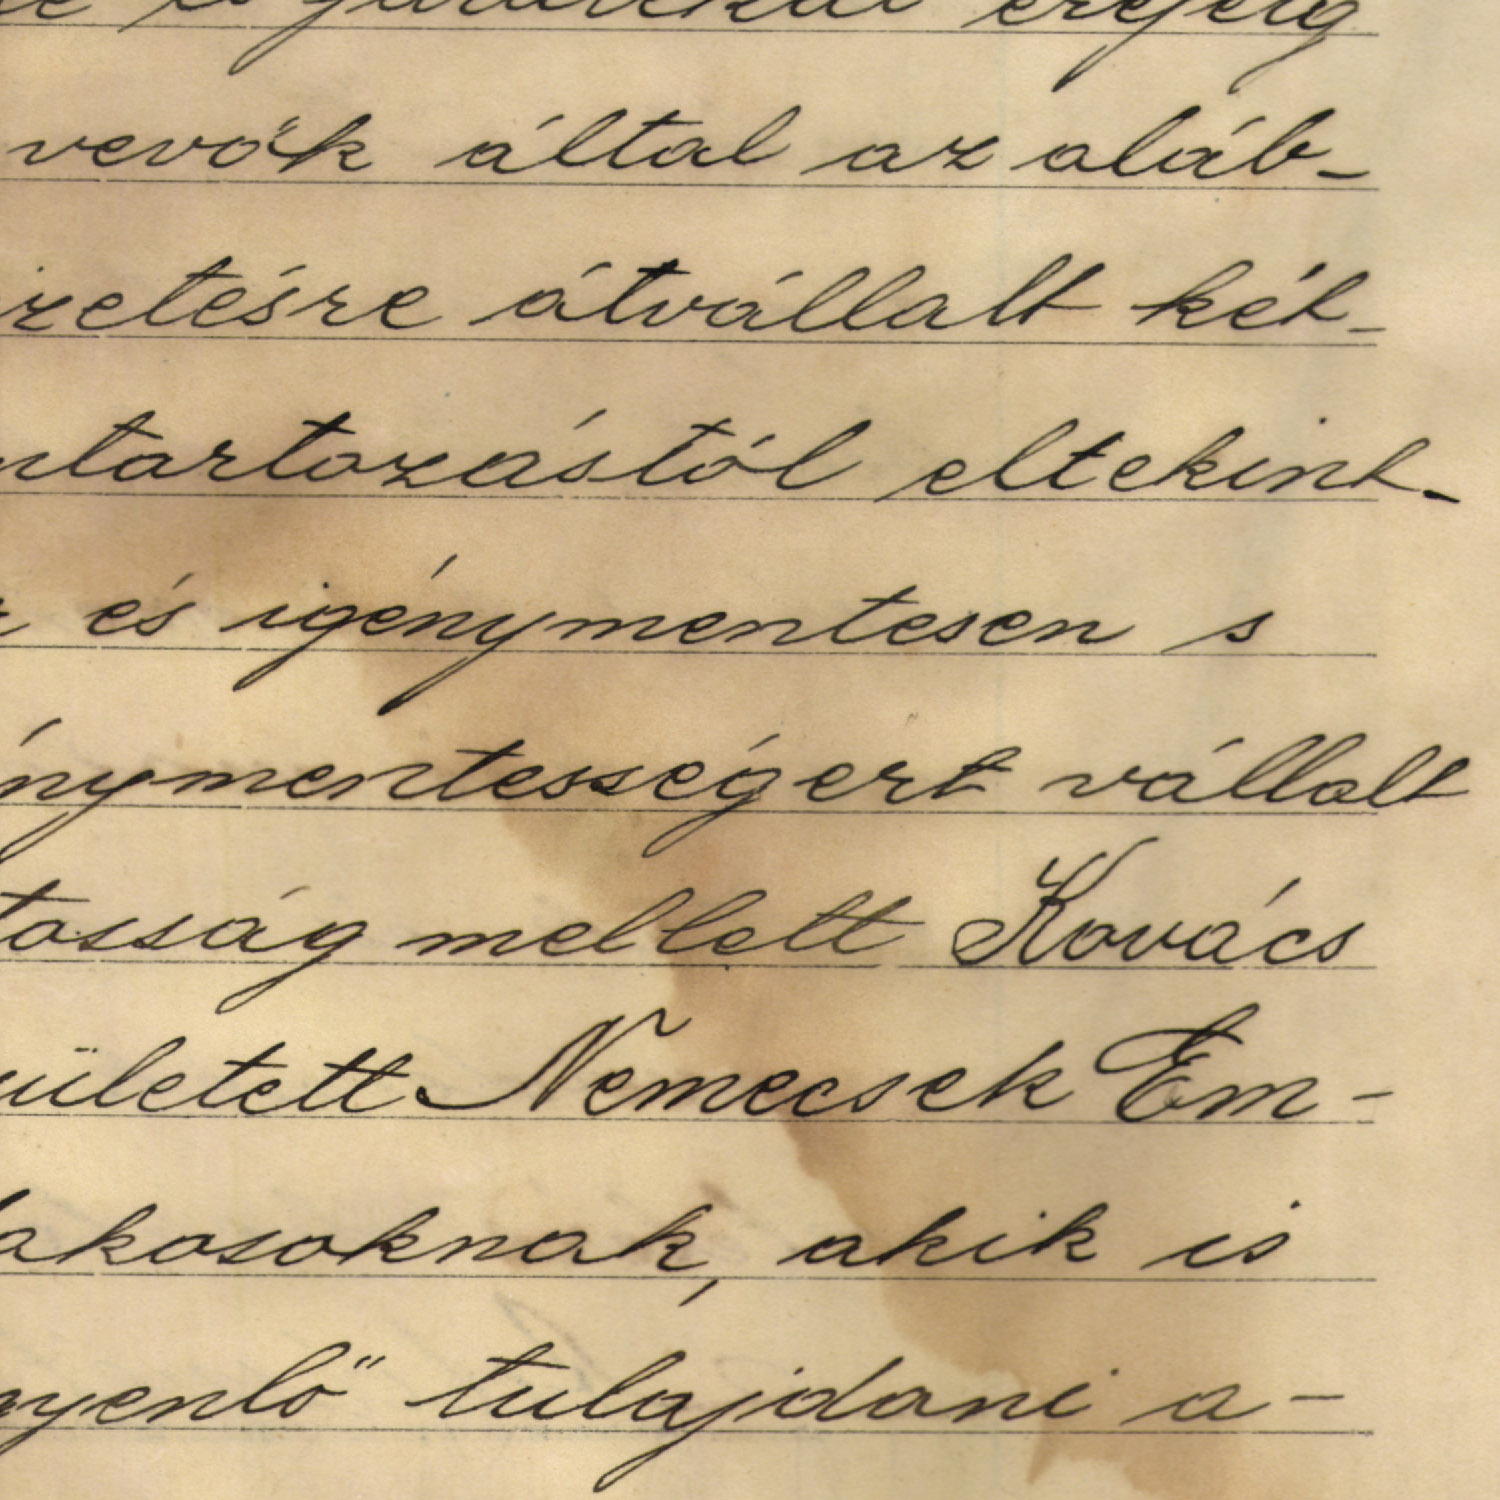 és járulékai erejéig
vevők által az aláb-
zetésre átvállalt két-
ntartozástól eltekint-
és igénymentesen s
énymentességért vállalt
tosság mellett Kovács
született Nemecsek Em-
lakosoknak, akik is
nyenlő tulajdoni a-